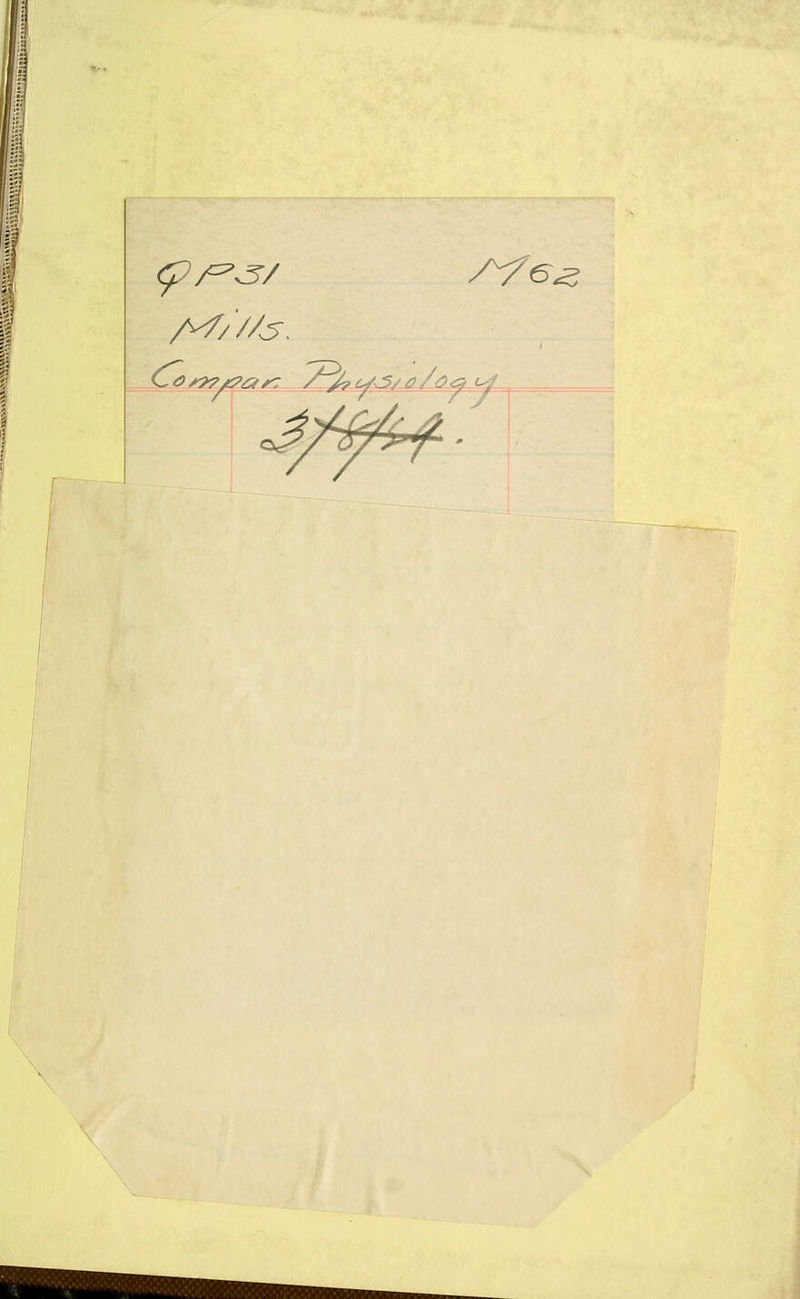 QP31 M62
Mills.
Compar. Physiology